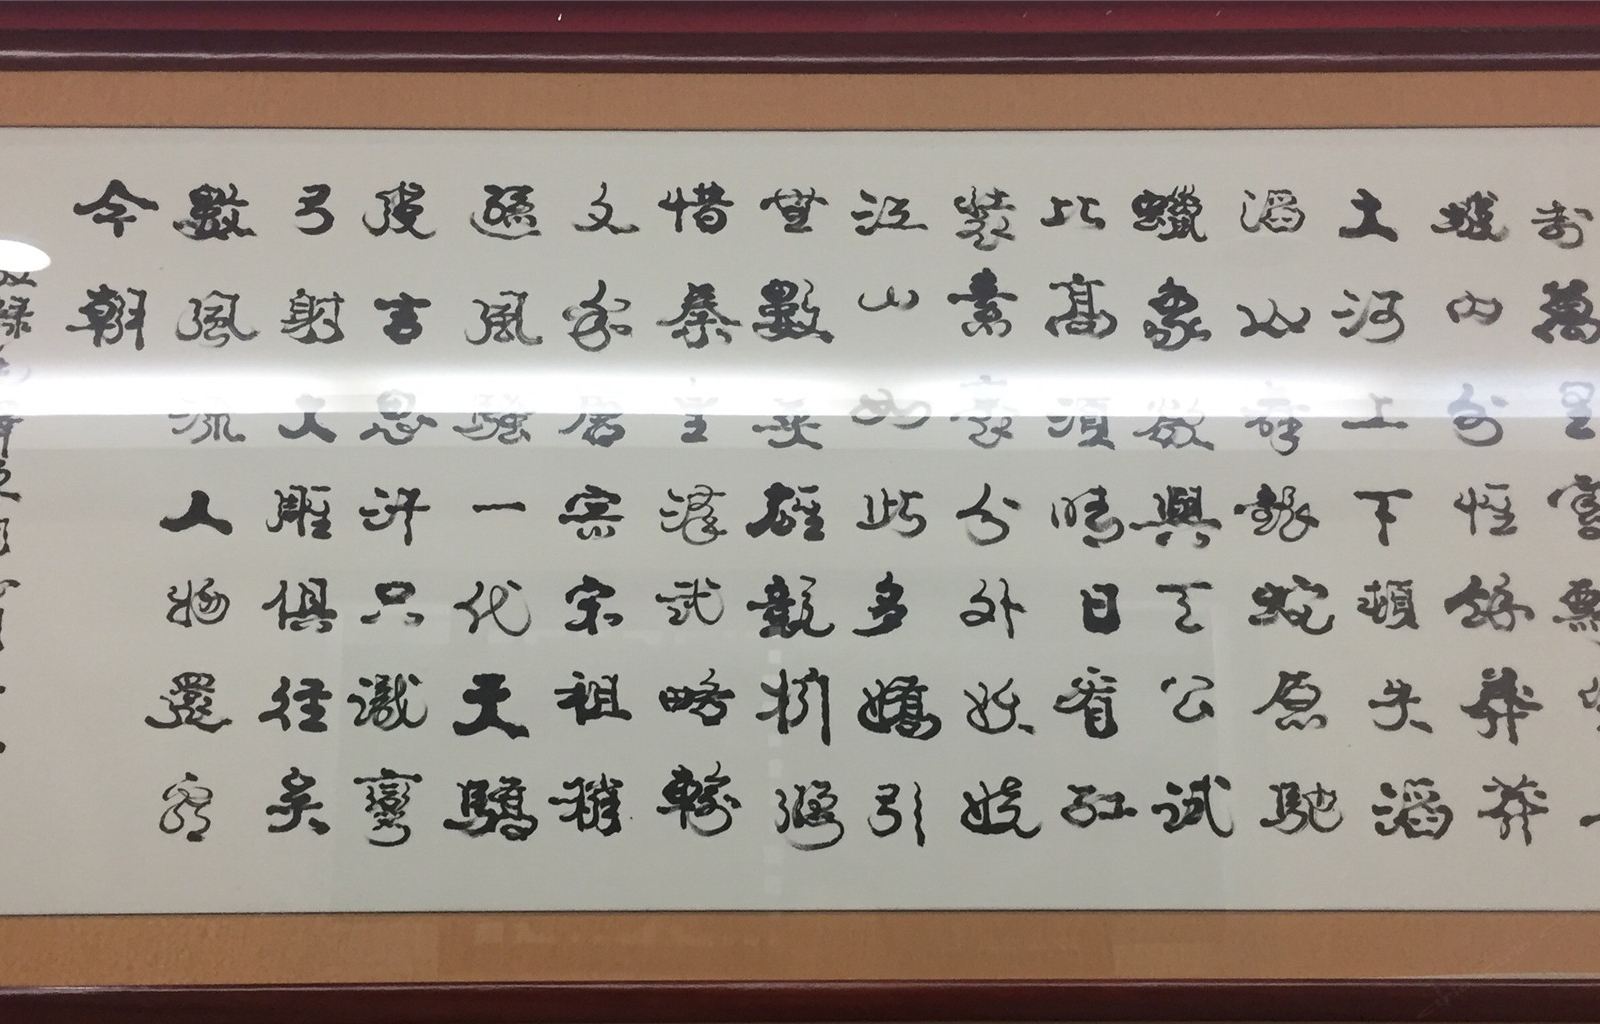 封萬里雪飄望
城内外惟餘莽莽
大河上下頓失滔
滔山舞銀蛇原馳
蠟象欲與天公試
比高須晴日看紅
裝素裹分外妖嬈
江山如此多嬌引
無數英雄競折腰
惜秦皇漢武略輸
文采唐宗宋祖稍
遜風騷一代天驕
成吉思汗只識彎
弓射大雕俱往矣
數風流人物還看
今朝